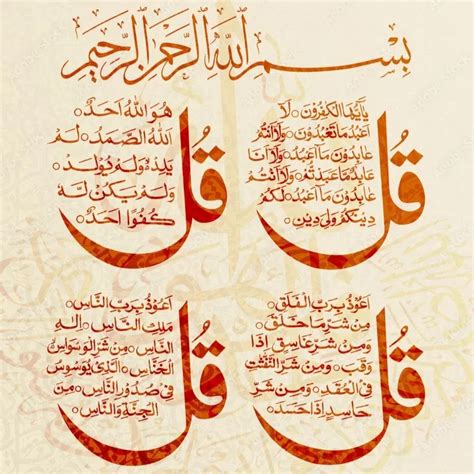 بِسْمِ اللهِ الرَّحْمٰنِ الرَّحِيْمِ
قُلْ
يٰٓاَيُّهَا الْكٰفِرُوْنَ ○ لَآ
اَعْبُدُ مَا تَعْبُدُوْنَ ○ وَلَآ اَنْتُمْ
عَابِدُوْنَ مَآ اَعْبُدُ ○ وَلَآ اَنَا
عَابِدٌ مَّا عَبَدْتُّمْ ○ وَلَآ اَنْتُمْ
عَابِدُوْنَ مَآ اَعْبُدُ ○ لَكُمْ
دِيْنُكُمْ وَلِيَ دِيْنِ ○
قُلْ
هُوَ اللهُ اَحَدٌ ○
اَللهُ الصَّمَدُ ○ لَمْ
يَلِدْ ○ وَلَمْ يُوْلَدْ ○
وَلَمْ يَكُنْ لَّهٗ
كُفُوًا اَحَدٌ ○
قُلْ
اَعُوْذُ بِرَبِّ الْفَلَقِ ○
مِنْ شَرِّ مَا خَلَقَ ○
وَمِنْ شَرِّ غَاسِقٍ اِذَا
وَقَبَ ○ وَمِنْ شَرِّ النَّفّٰثٰتِ
فِي الْعُقَدِ ○ وَمِنْ شَرِّ
حَاسِدٍ اِذَا حَسَدَ ○
قُلْ
اَعُوْذُ بِرَبِّ النَّاسِ ○
مَلِكِ النَّاسِ ○ اِلٰهِ
النَّاسِ ○ مِنْ شَرِّ الْوَسْوَاسِ
الْخَنَّاسِ ○ الَّذِيْ يُوَسْوِسُ
فِيْ صُدُوْرِ النَّاسِ ○ مِنَ
الْجِنَّةِ وَالنَّاسِ ○